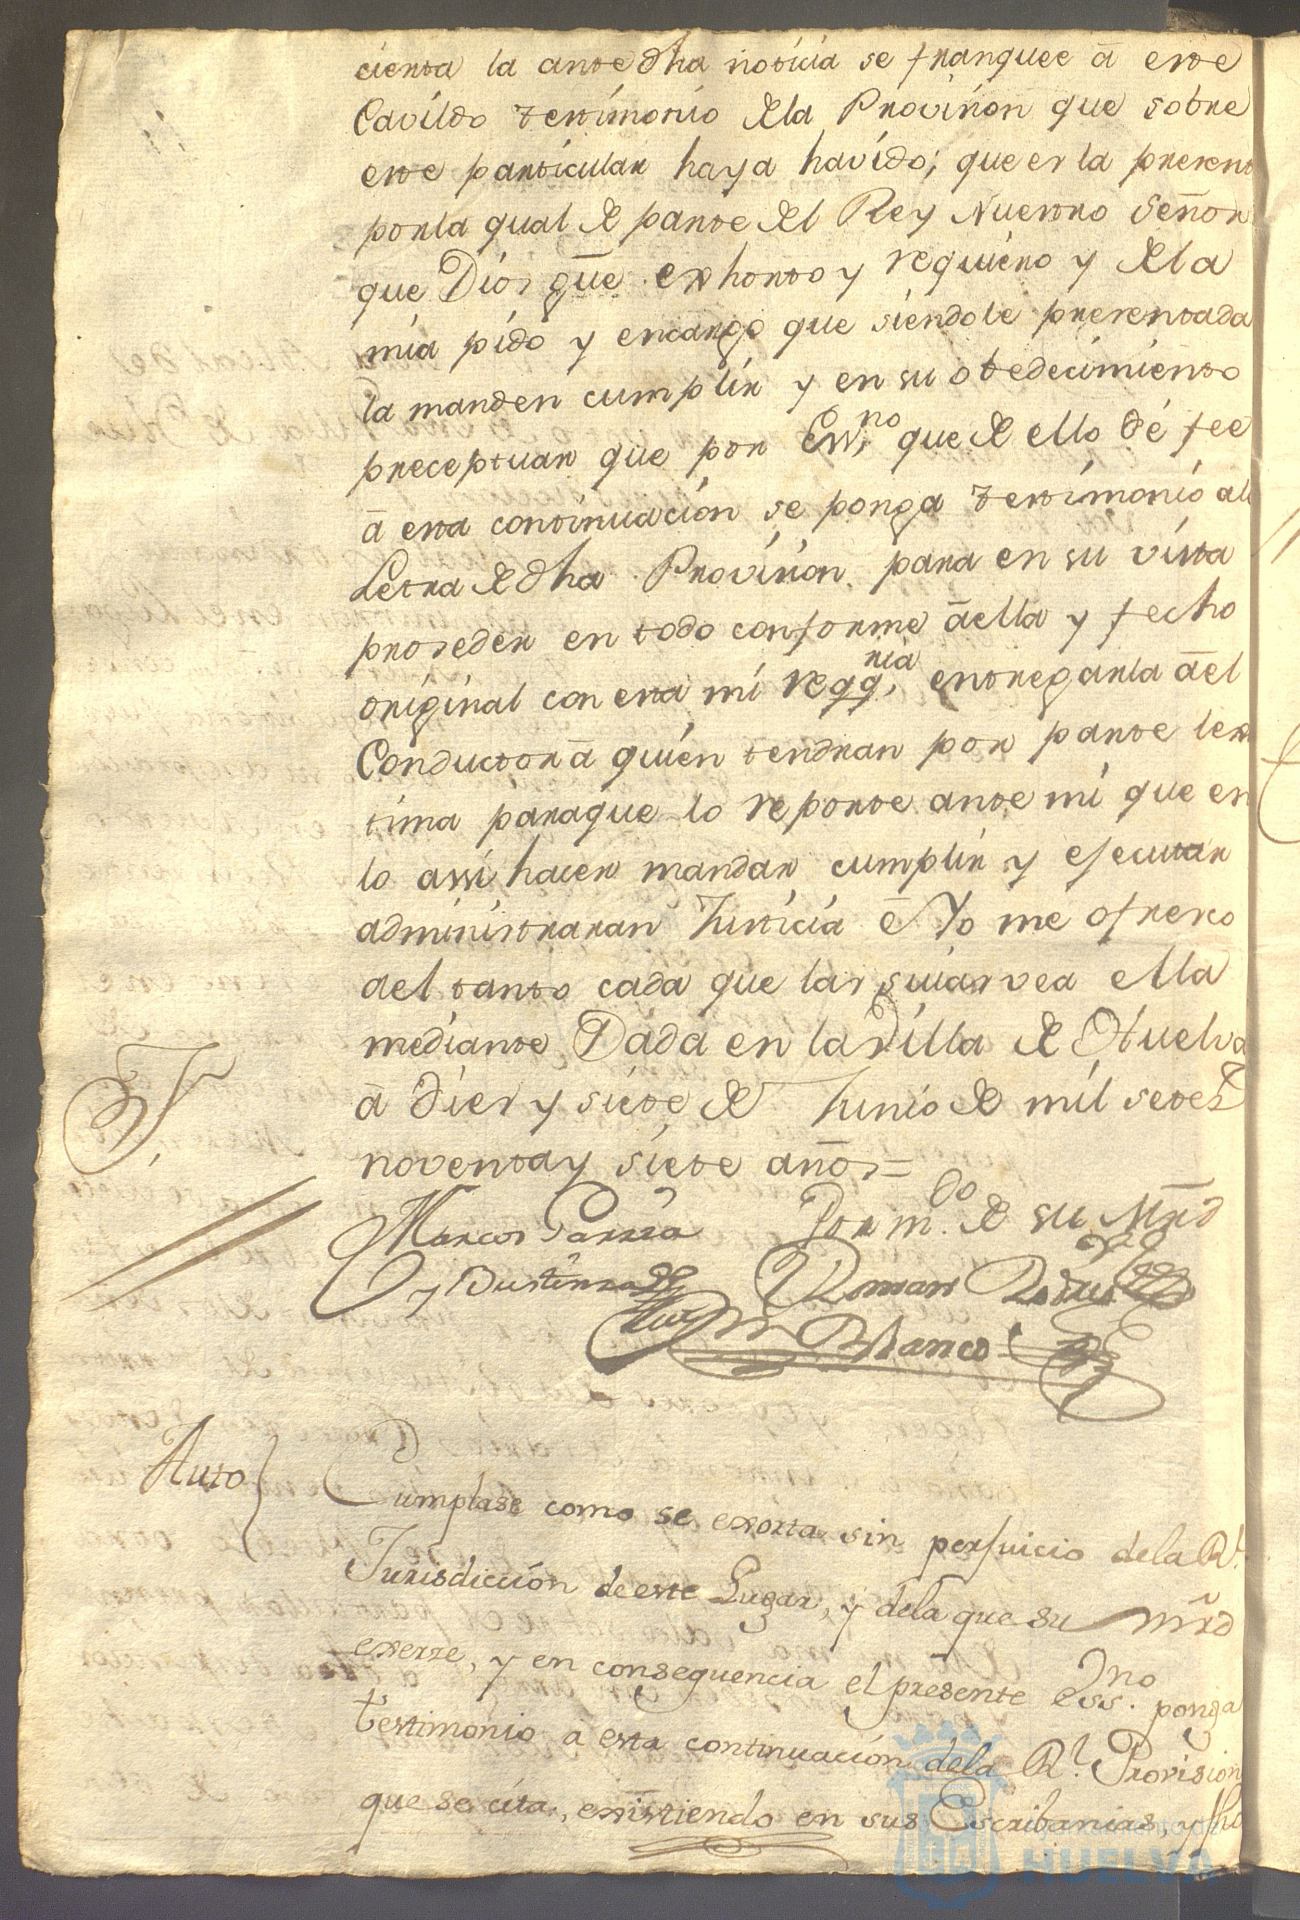 cierta la antedha noticia se franquee ā este
Cavildo testimonio dela Provision que sobre
este particular haya havido; que es la present
porla qual de parte del Rey Nuestro Señor
que Dios gūe exhorto y requiero y dela
mia pido y encargo que siendole presentada
la manden cumplir y en su obedecimiento
preceptuar que por Essno que de ello dé fee
ā esta continuacion se ponga testimonio ala
Letra de dha Provision para en su vista
proseder en todo conforme āella y fecho
original con esta mi reqqria, entregarla āel
Conductor ā quien tendran por parte lexi
tima paraque lo reporte ante mi que en
lo assi hacer mandar cumplir y ejecutar
administraran Justicia ē Yo me ofresco
del tanto cada que las suias vea ella
mediante Dada en la Villa de Huelva
ā dies y siete de Junio de mil setez
noventa y siete años=
Marcos Garzia Por mdo. de su Mrd
y Bustinza Roman Rodrig
Blanco
Auto Cumplase como se exorta sin perjuicio dela Rl.
Jurisdiccion de este Lugar, y dela que su mrd
exerze, y en consequencia el presente Essno. ponga
testimonio a esta continuacion dela Rl. Provision
que se cita, existiendo en sus Escribanias, y fho
Ayuntamiento de
HUELVA